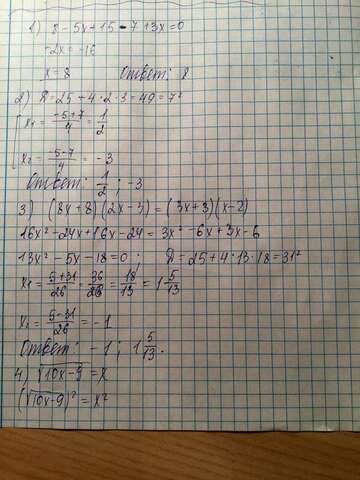 1) 8 - 5x + 15 - 7 + 3x = 0
-2x = -16
x = 8 Ответ: 8
2) D = 25 + 4 · 2 · 3 = 49 = 7²
x₁ = (-5+7)/4 = 1/2
x₂ = (-5-7)/4 = -3
Ответ: 1/2 ; -3
3) (8x+8)(2x-3) = (3x+3)(x-2)
16x² - 24x + 16x - 24 = 3x² - 6x + 3x - 6
13x² - 5x - 18 = 0 ; D = 25 + 4 · 13 · 18 = 31²
x₁ = (5+31)/26 = 36/26 = 18/13 = 1 5/13
x₂ = (5-31)/26 = -1
Ответ: -1 ; 1 5/13.
4) √(10x-9) = x
(√(10x-9))² = x²